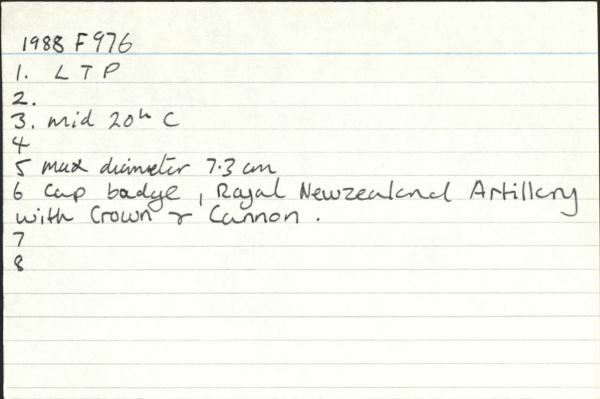 1988 F976
1. LTP
2.
3. mid 20th C
4
5 max diameter 7.3 cm
6 Cap badge, Royal Newzealand Artillery
with Crown & Cannon.
7
8